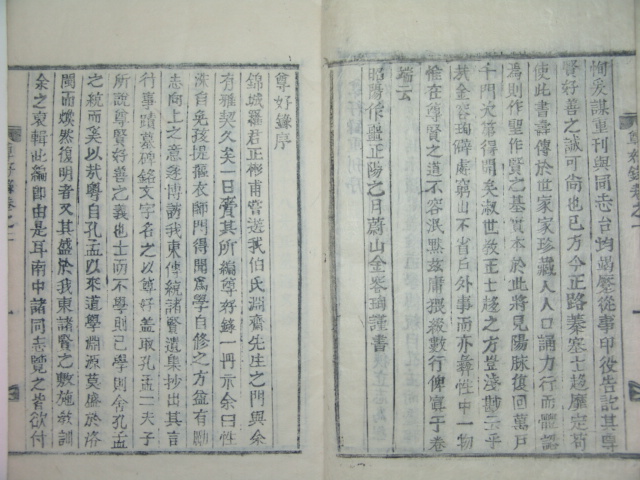 恂爰謀重刊與同志台均竭蹙從事印役告訖其尊
賢好善之誠可尙也已方今正路蓁塞士趍靡定苟
使此書壽傳於世家家珍藏人人口誦力行而體認
焉則作聖作賢之基實本於此將見陽脉復回萬戶
千門次第得開矣淑世教正士趍之方豈淺尠云乎
哉金容璹僻處窮林不省戶外事而亦彜性中一物
惟在尊賢之道不容泯默玆庸猥綴數行俾寘于卷
端云
昭陽作噩正陽之日蔚山金容璹謹書
尊好錄序
錦城羅君正彬甫嘗遊我伯氏淵齋先生之門與余
有雅契久矣一日賫其所編尊好錄一冊示余曰性
洙自免孩提摳衣師門得聞爲學自修之方益有勵
志向上之意遂博訪我東傳統諸賢遺集抄出其言
行事蹟墓碑銘文字名之以尊好盖取孔孟二夫子
所說尊賢好善之義也士而不學則已學則舍孔孟
之統而奚以哉粤自孔孟以來道學淵源莫盛於洛
閩而煥然復明者又其盛於我東諸賢之敷施敎訓
余之裒輯此編卽由是耳南中諸同志覽之皆欲付
尊好錄卷之一